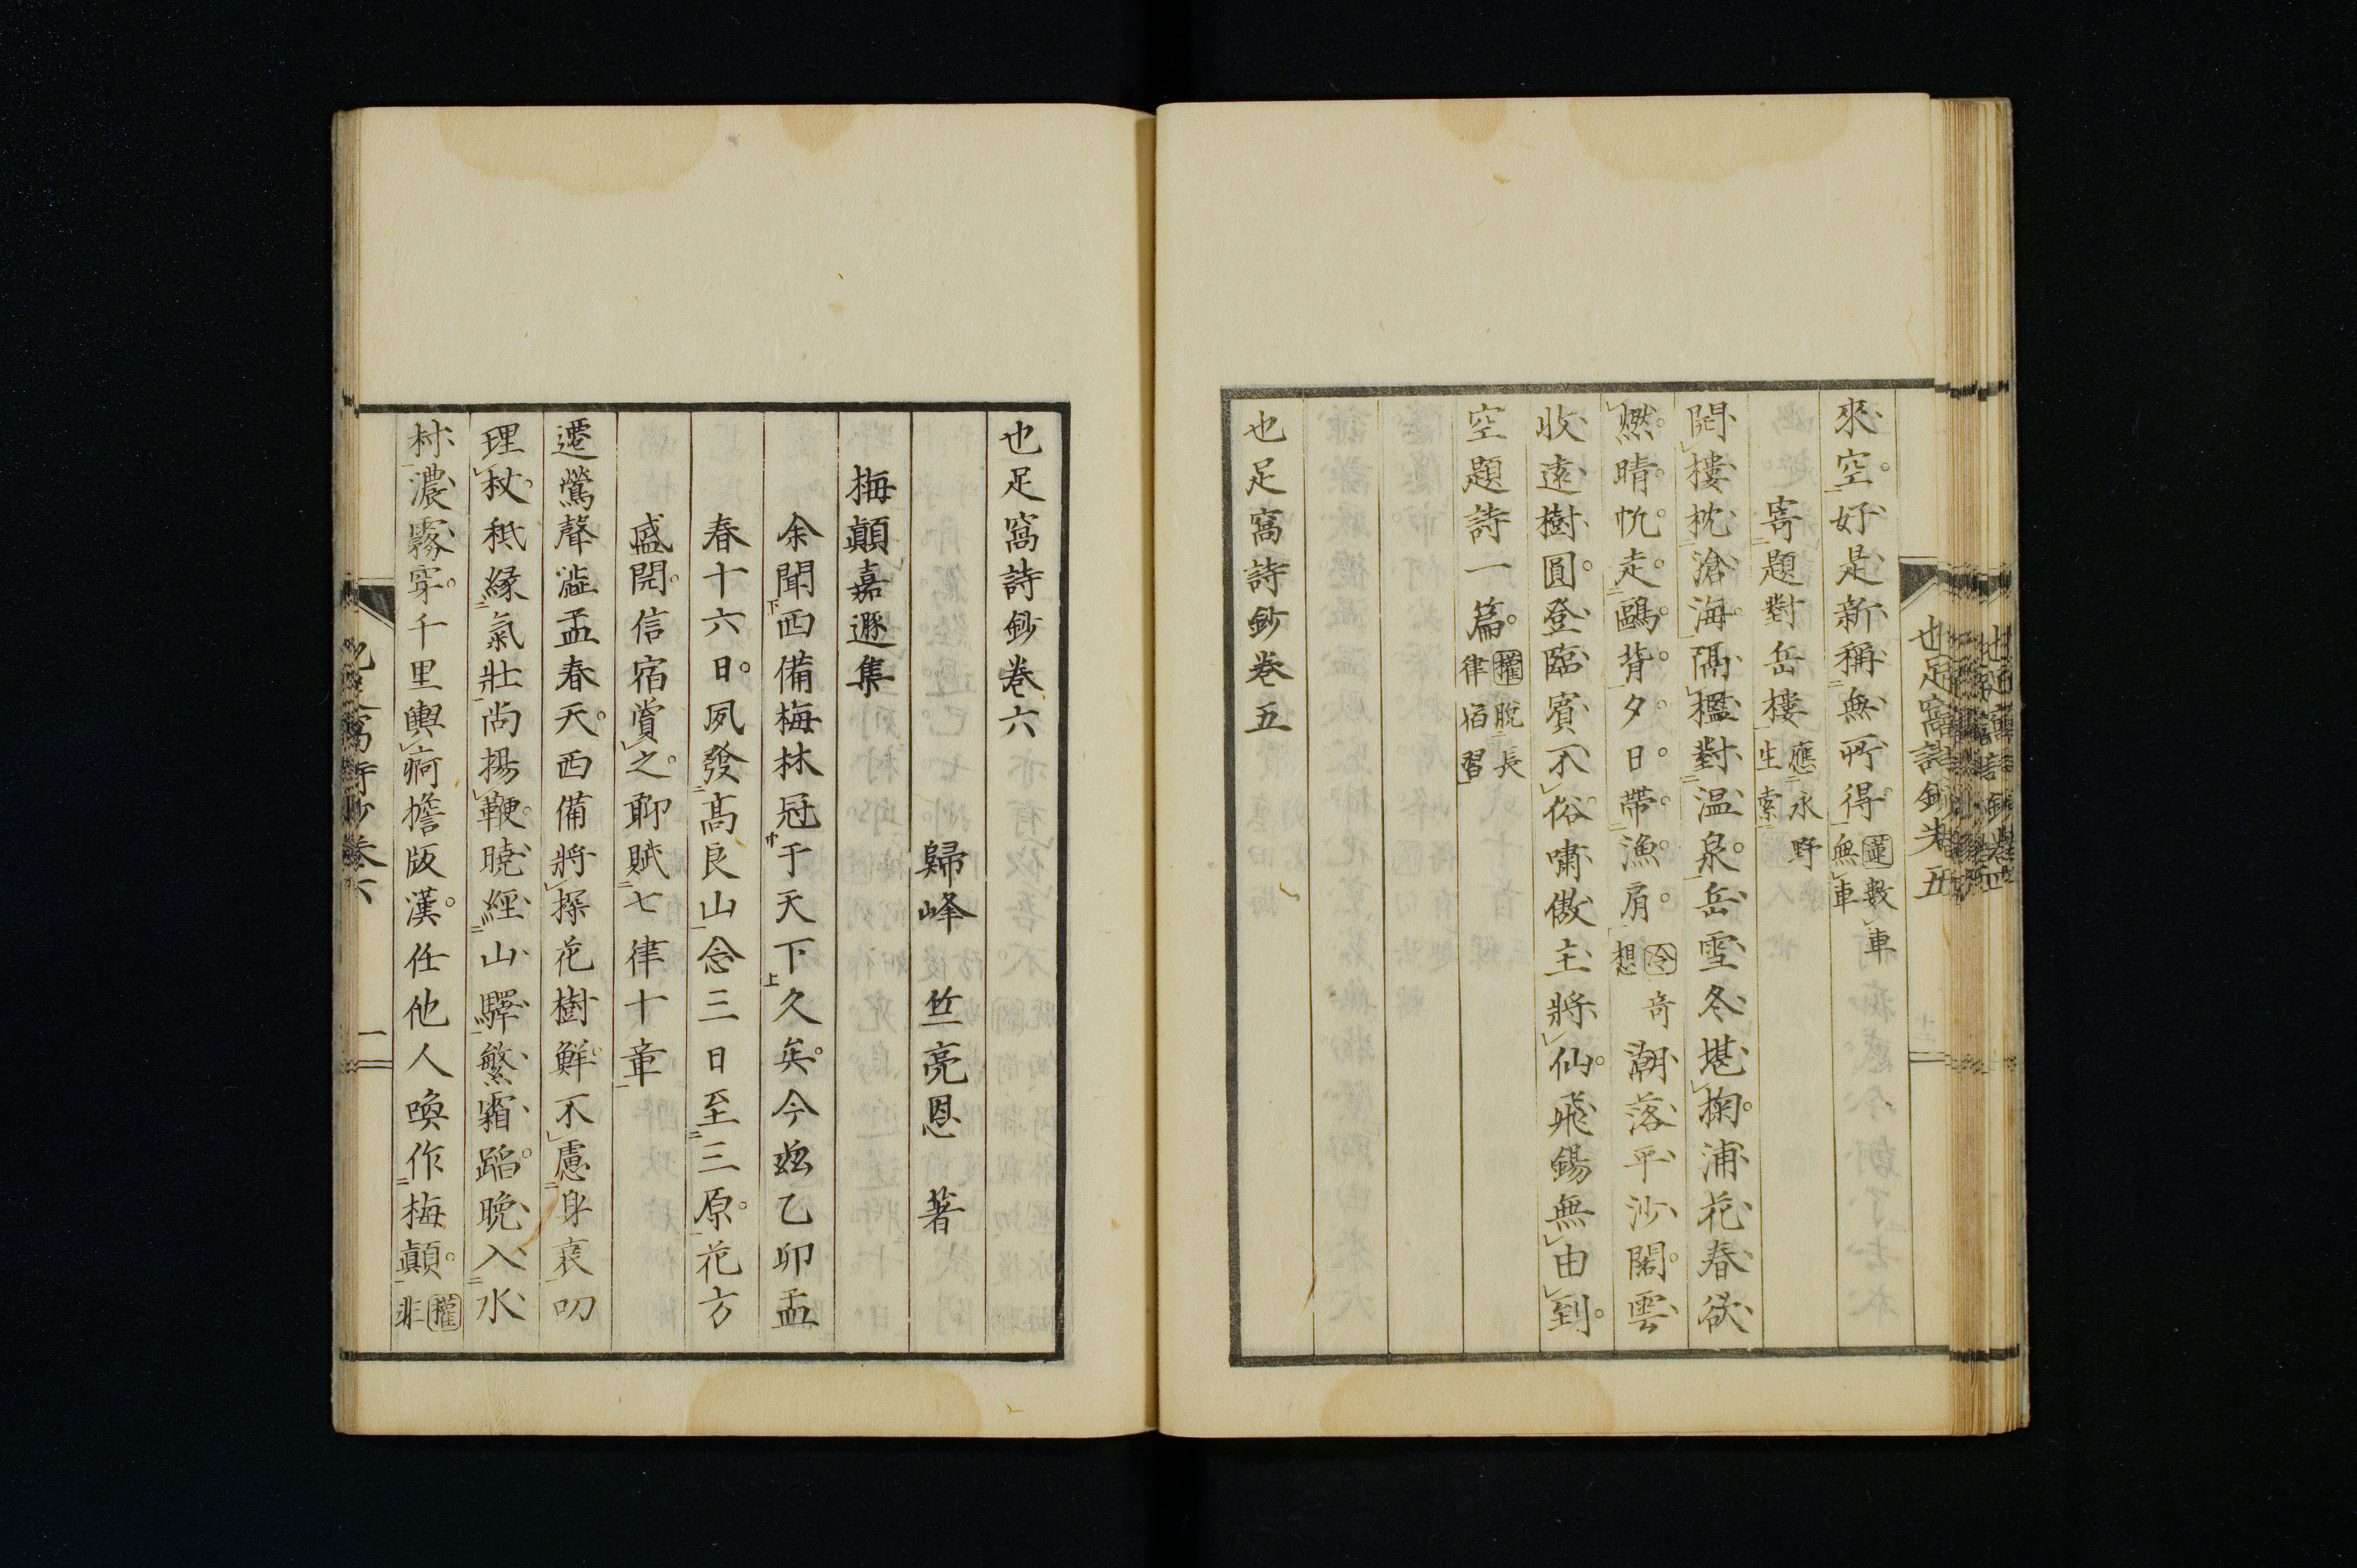 來空。好是新稱無所得。蓮數車無車
寄題對岳樓應水野生索
開樓枕滄海隔檻對温泉。岳雪冬堪掬。浦花春欲
燃。晴帆走鷗背。夕日帶漁肩。冷奇想潮落平沙闊。雲
收遠樹圓。登臨賓不俗嘯傲主將仙。飛錫無由到。
空題詩一篇。權脫長律陷習
也足窩詩鈔卷五
也足窩詩鈔卷五
也足窩詩鈔卷六
歸峰 竺亮恩 著
梅顛嘉遯集
余聞西備梅林冠于天下久矣。今茲乙卯孟
春十六日。夙發高良山念三日至三原。花方
盛開。信宿賞之。聊賦七律十章
遷鶯聲澁孟春天。西備將探花樹鮮。不慮身衰叨
理杖。秖緣氣壯尚揚鞭。曉經山驛繁霜蹈。晚入水
村濃霧穿。千里輿痾擔版漢。任他人喚作梅顛。權非
也足窩詩鈔卷六
一